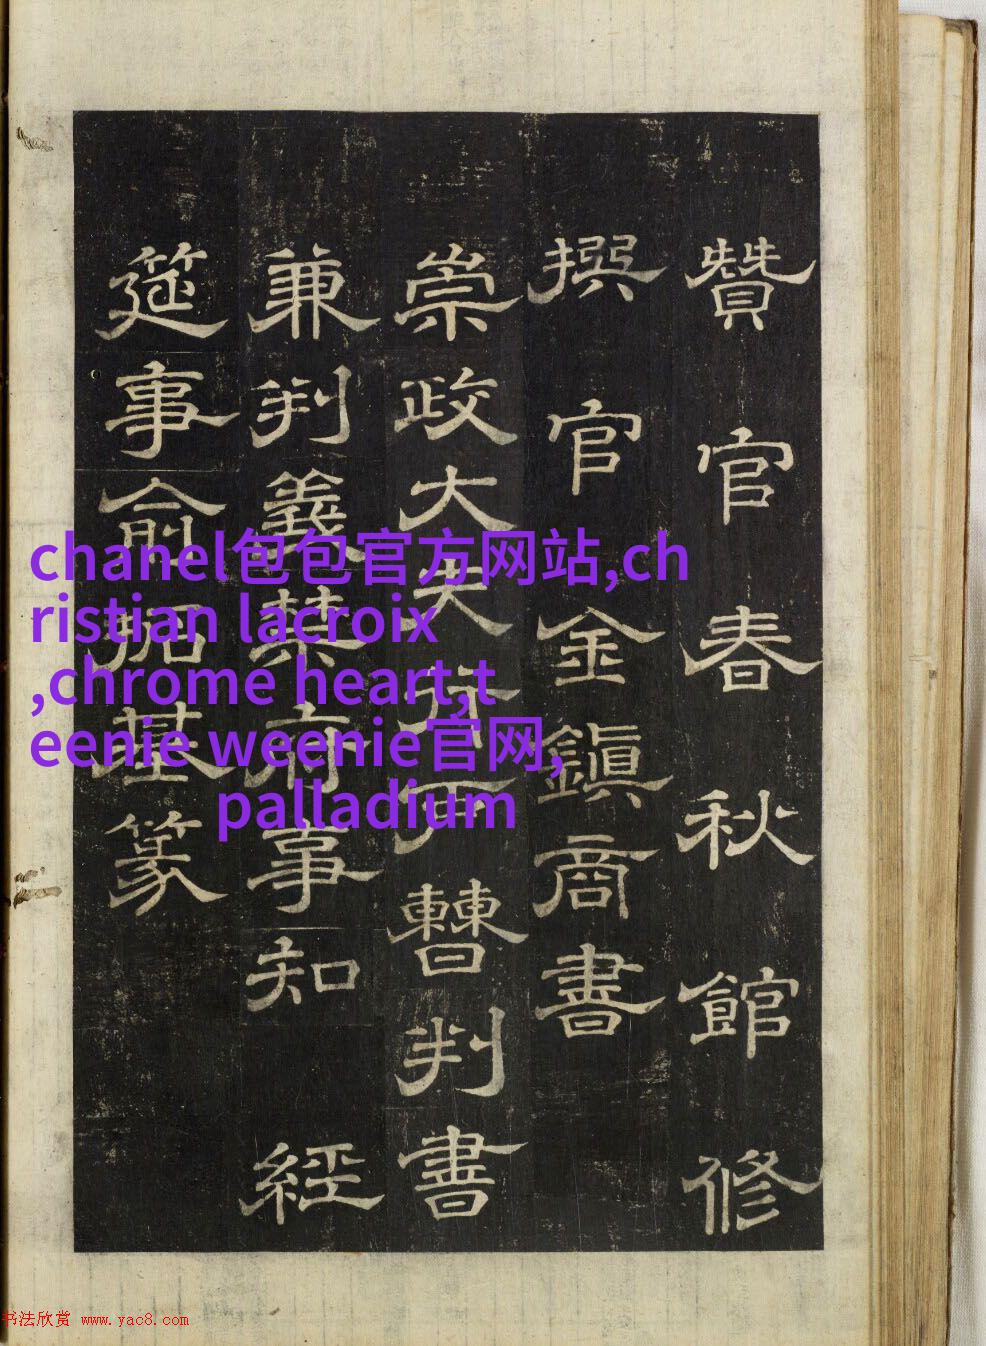 贊官春秋館修
撰官金鎮商書
崇政大夫行戶曹判書
兼判義禁府事知經
筵事俞拓基篆
chanel包包官方网站,ch
ristian lacroix
,chrome heart,t
eenie weenie官网,
palladium
书法欣赏 www.yac8.com